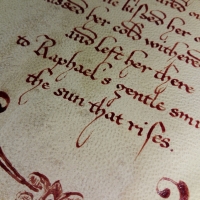 kissed her
her cold withered
and left her there
to Raphael's gentle
the sun that rises.